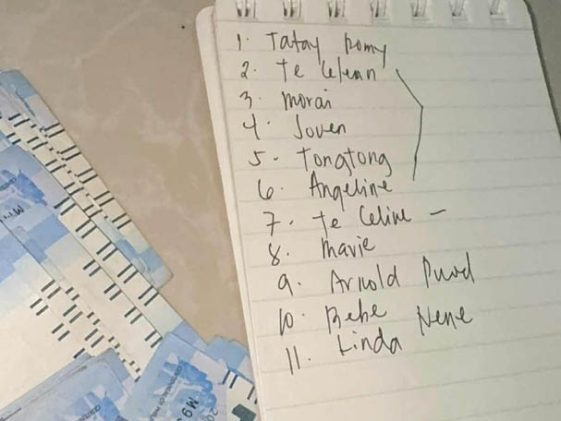 1. Tatay Romy
2. Te Celean
3. morai
4. Joven
5. Tongtong
6. Angeline
7. Te Celine –
8. mavie
9. Arnold
10. Bebe Nene
11. Linda